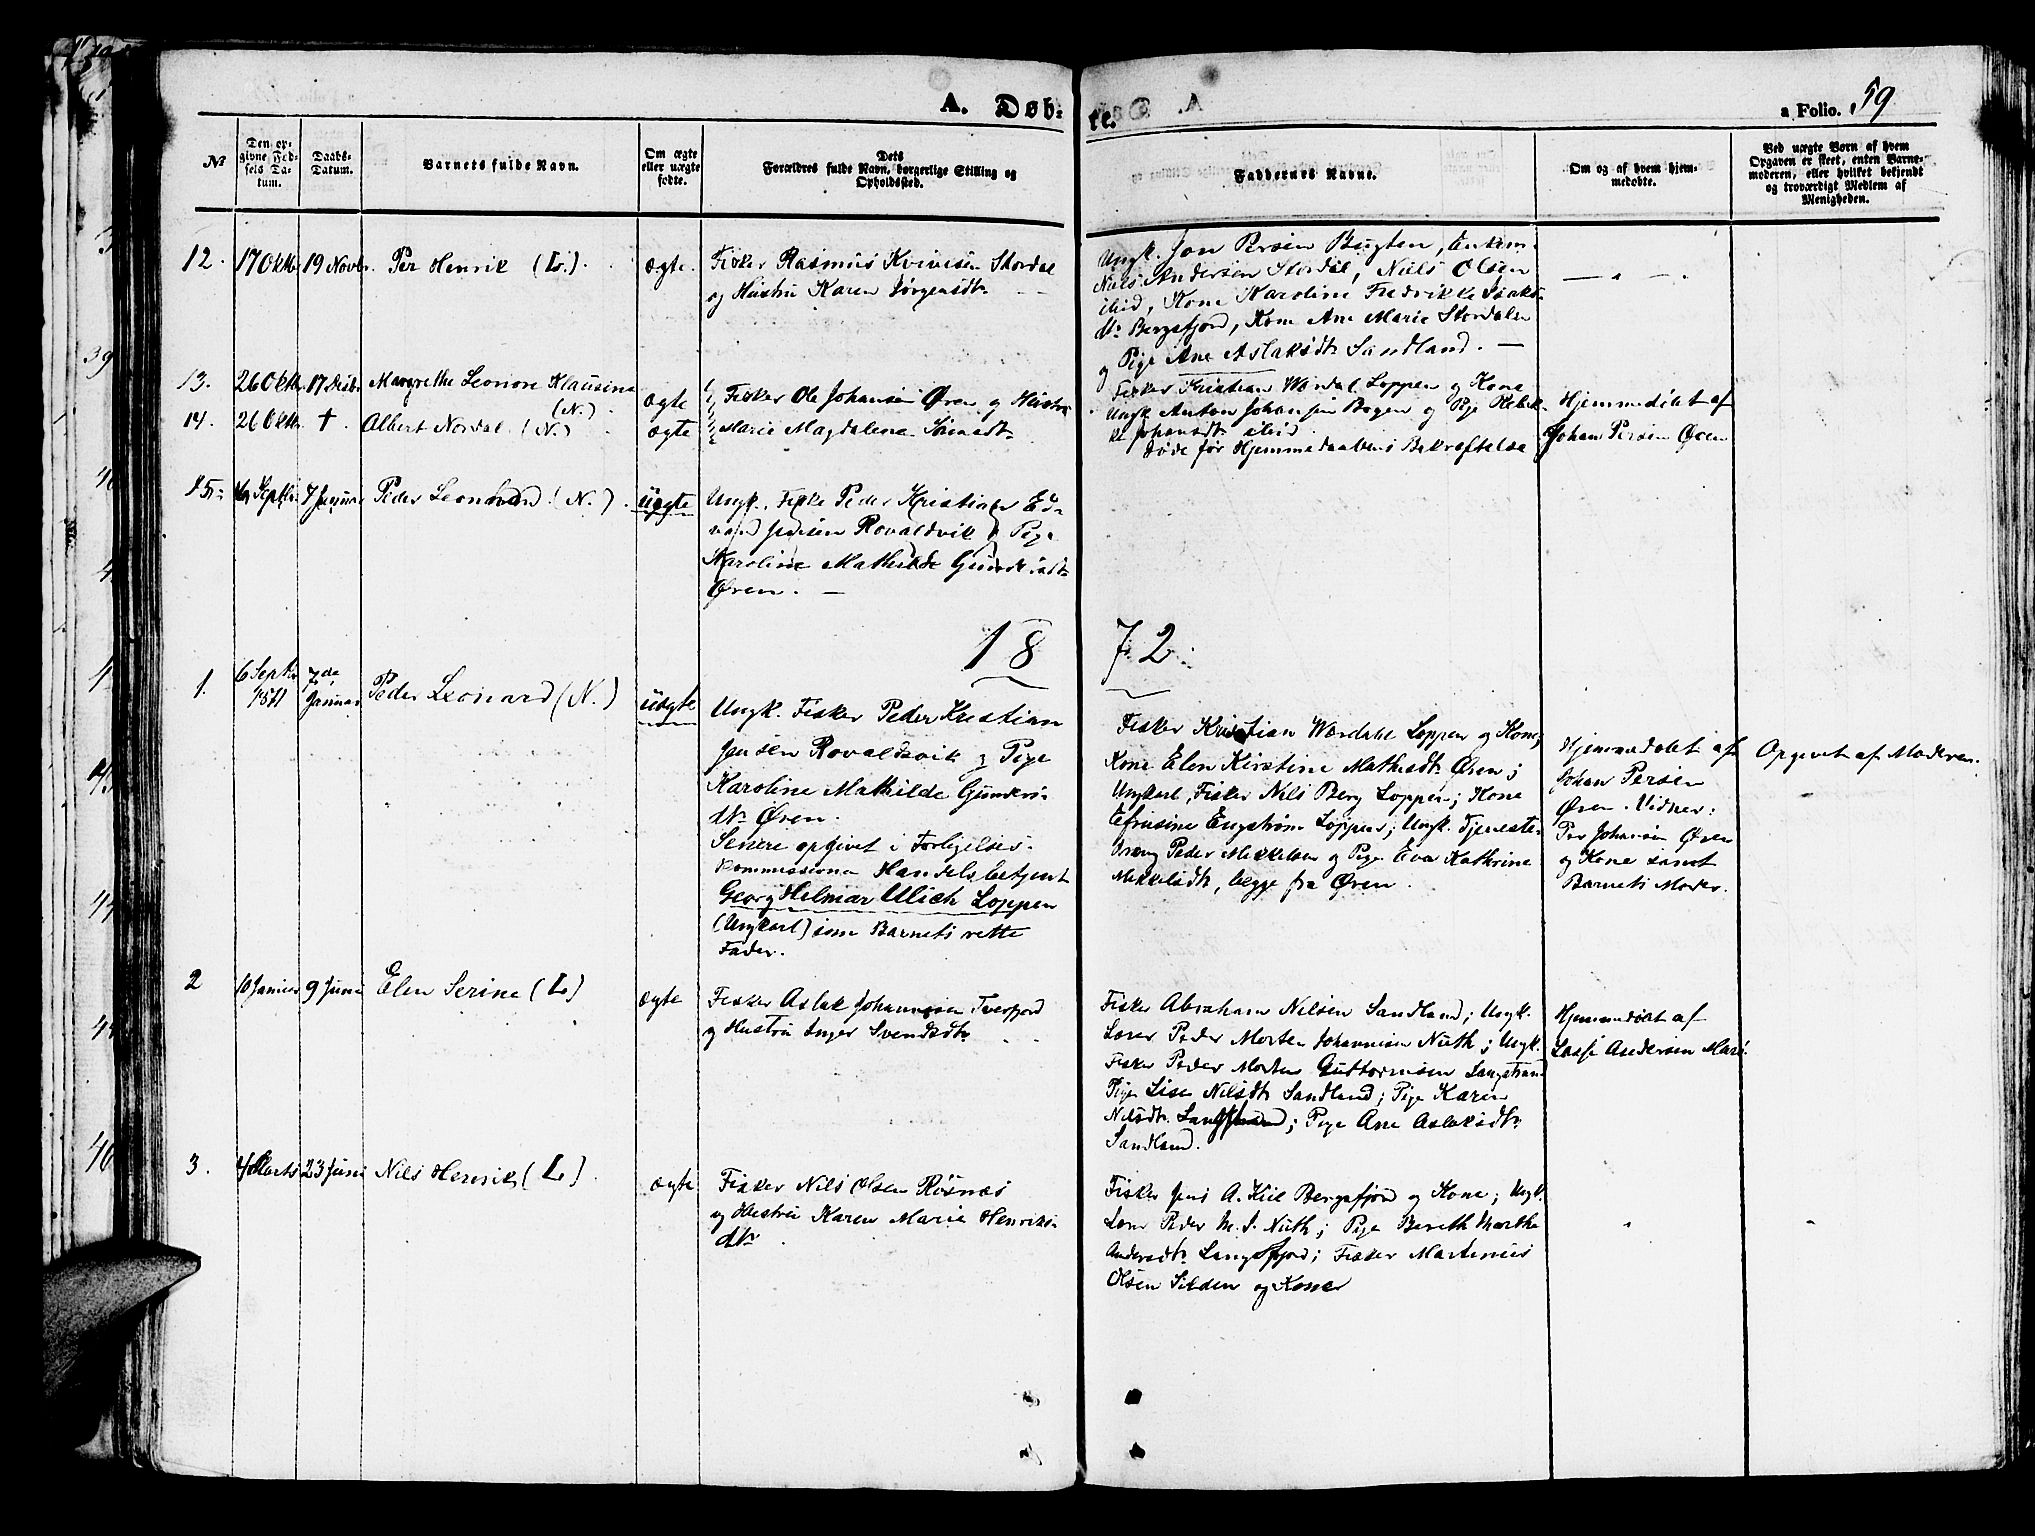 A. Døb-
te.
a Folio. 59
№
Den op-
givne Fød-
sels Da-
tum.
Daabs-
Datum.
Barnets fulde Navn.
Om ægte
eller uægte
fødte.
Dets
Forældres fulde Navn, borgerlige Stilling og
Opholdssted.
Faddernes Navne.
Om og af hvem hjem-
medøbte.
Ved uægte Børn af hvem
Opgaven er skeet, enten Barne-
moderen, eller hvilket bekjendt
og troværdigt Medlem af
Menigheden.
12. 17 Oktb. 19 Novbr. Per Henrik (L.) ægte.
Fisker Rasmus Kvivesen Stordal
og Hustru Karen Jørgensdtr
Ungk. Jon Persen Bugten, Enkem.
Niels Andersen Stordal, Niels Olsen
ibid, Kone Karoline Fredrikke Isaks-
dtr Bergsfjord, Kone Ane Marie Stordalen
og Pige Ane Aslaksdtr Sandland. —
13. 26 Oktb. 17 Desb. Margrethe Leonore Klausine
(N.) ægte
Fisker Ole Johansen Øren og Hustru
14. 26 Oktb. † Albert Nordal (N.) ægte
Marie Magdalena
Fisker Kristian Wardal Loppen og Kone
Ungk Anton Johansen Bogen og Pige Rebek-
ke Johansdtr ibid
døde før Hjemmedaabens Bekræftelse
Hjemmedøbt af
Johan Persen Øren
15. Septbr. 7 Januar Peder Leonhard (N.) uægte
Ungk. Fisker Peder Kristian Ed-
vard Jensen Rovaldvik & Pige
Karoline Mathilde
Øren. —
18 72.
1. 6 Septbr
1871 7de
Januar Peder Leonard (N.) uægte
Ungk. Fisker Peder Kristian
Jensen Rovaldsvik & Pige
Karoline Mathilde Gunders-
dtr Øren.
Senere opgivet i Forligelses-
kommissionen Handelsbetjent
Georg Helmar Ulich Loppen
(Ungkarl) som Barnets rette
Fader.
Fisker Kristian Wardahl Loppen og Kone;
Kone Elen Kirstine Mathisdtr Øren;
Ungkarl, Fisker Nils Berg Loppen; Kone
Efrusine Engstrøm Loppen; Ungk. Tjeneste-
dreng Peder Mikkelsen og Pige Eva Kathrine
Mikkelsdtr, begge fra Øren.
Hjemmedøbt af
Johan Persen
Øren. Vidner:
Per Johansen Øren
og Kone samt
Barnets Moder.
Opgivet af Moderen.
2 10 Januar 9 Juni Elen Serine (L.) ægte
Fisker Aslak Johannesen Tverfjord
og Hustru Inger Svendsdtr
Fisker Abraham Nilsen Sandland; Ungk.
Lærer Peder Morten Johannesen Nuth; Ungk.
Fisker Peder Morten Guttormsen Langstrand
Pige Lise Nilsdtr Sandland; Pige Karen
Nilsdtr. Langstrand; Pige Ane Aslaksdtr
Sandland.
Hjemmedøbt af
Lasse Andersen
3. 4 Marts 23 Juni Nils Henrik (L.) ægte
Fisker Nils Olsen Røsnæs
og Hustru Karen Marie Henriks-
dtr
Fisker Jens A. Kiil Bergsfjord og Kone; Ungk.
Lærer Peder M. J. Nuth; Pige Bereth Marthe
Andersdtr Langfjord; Fisker Martinus
Olsen Silden og Kone